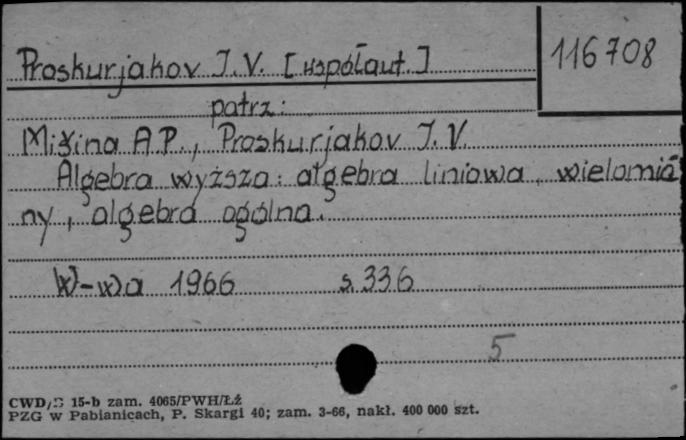 Proskurjakov I.V. [współaut.]
116708
patrz:
Mišina A.P., Proskurjakov I.V.
Algebra wyższa: algebra liniowa, wielomia
ny, algebra ogólna.
W-wa 1966 s. 336
5
CWD/S 15-b zam. 4065/PWH/Łź
PZG w Pabianicach, P. Skargi 40; zam. 3-66, nakł. 400 000 szt.